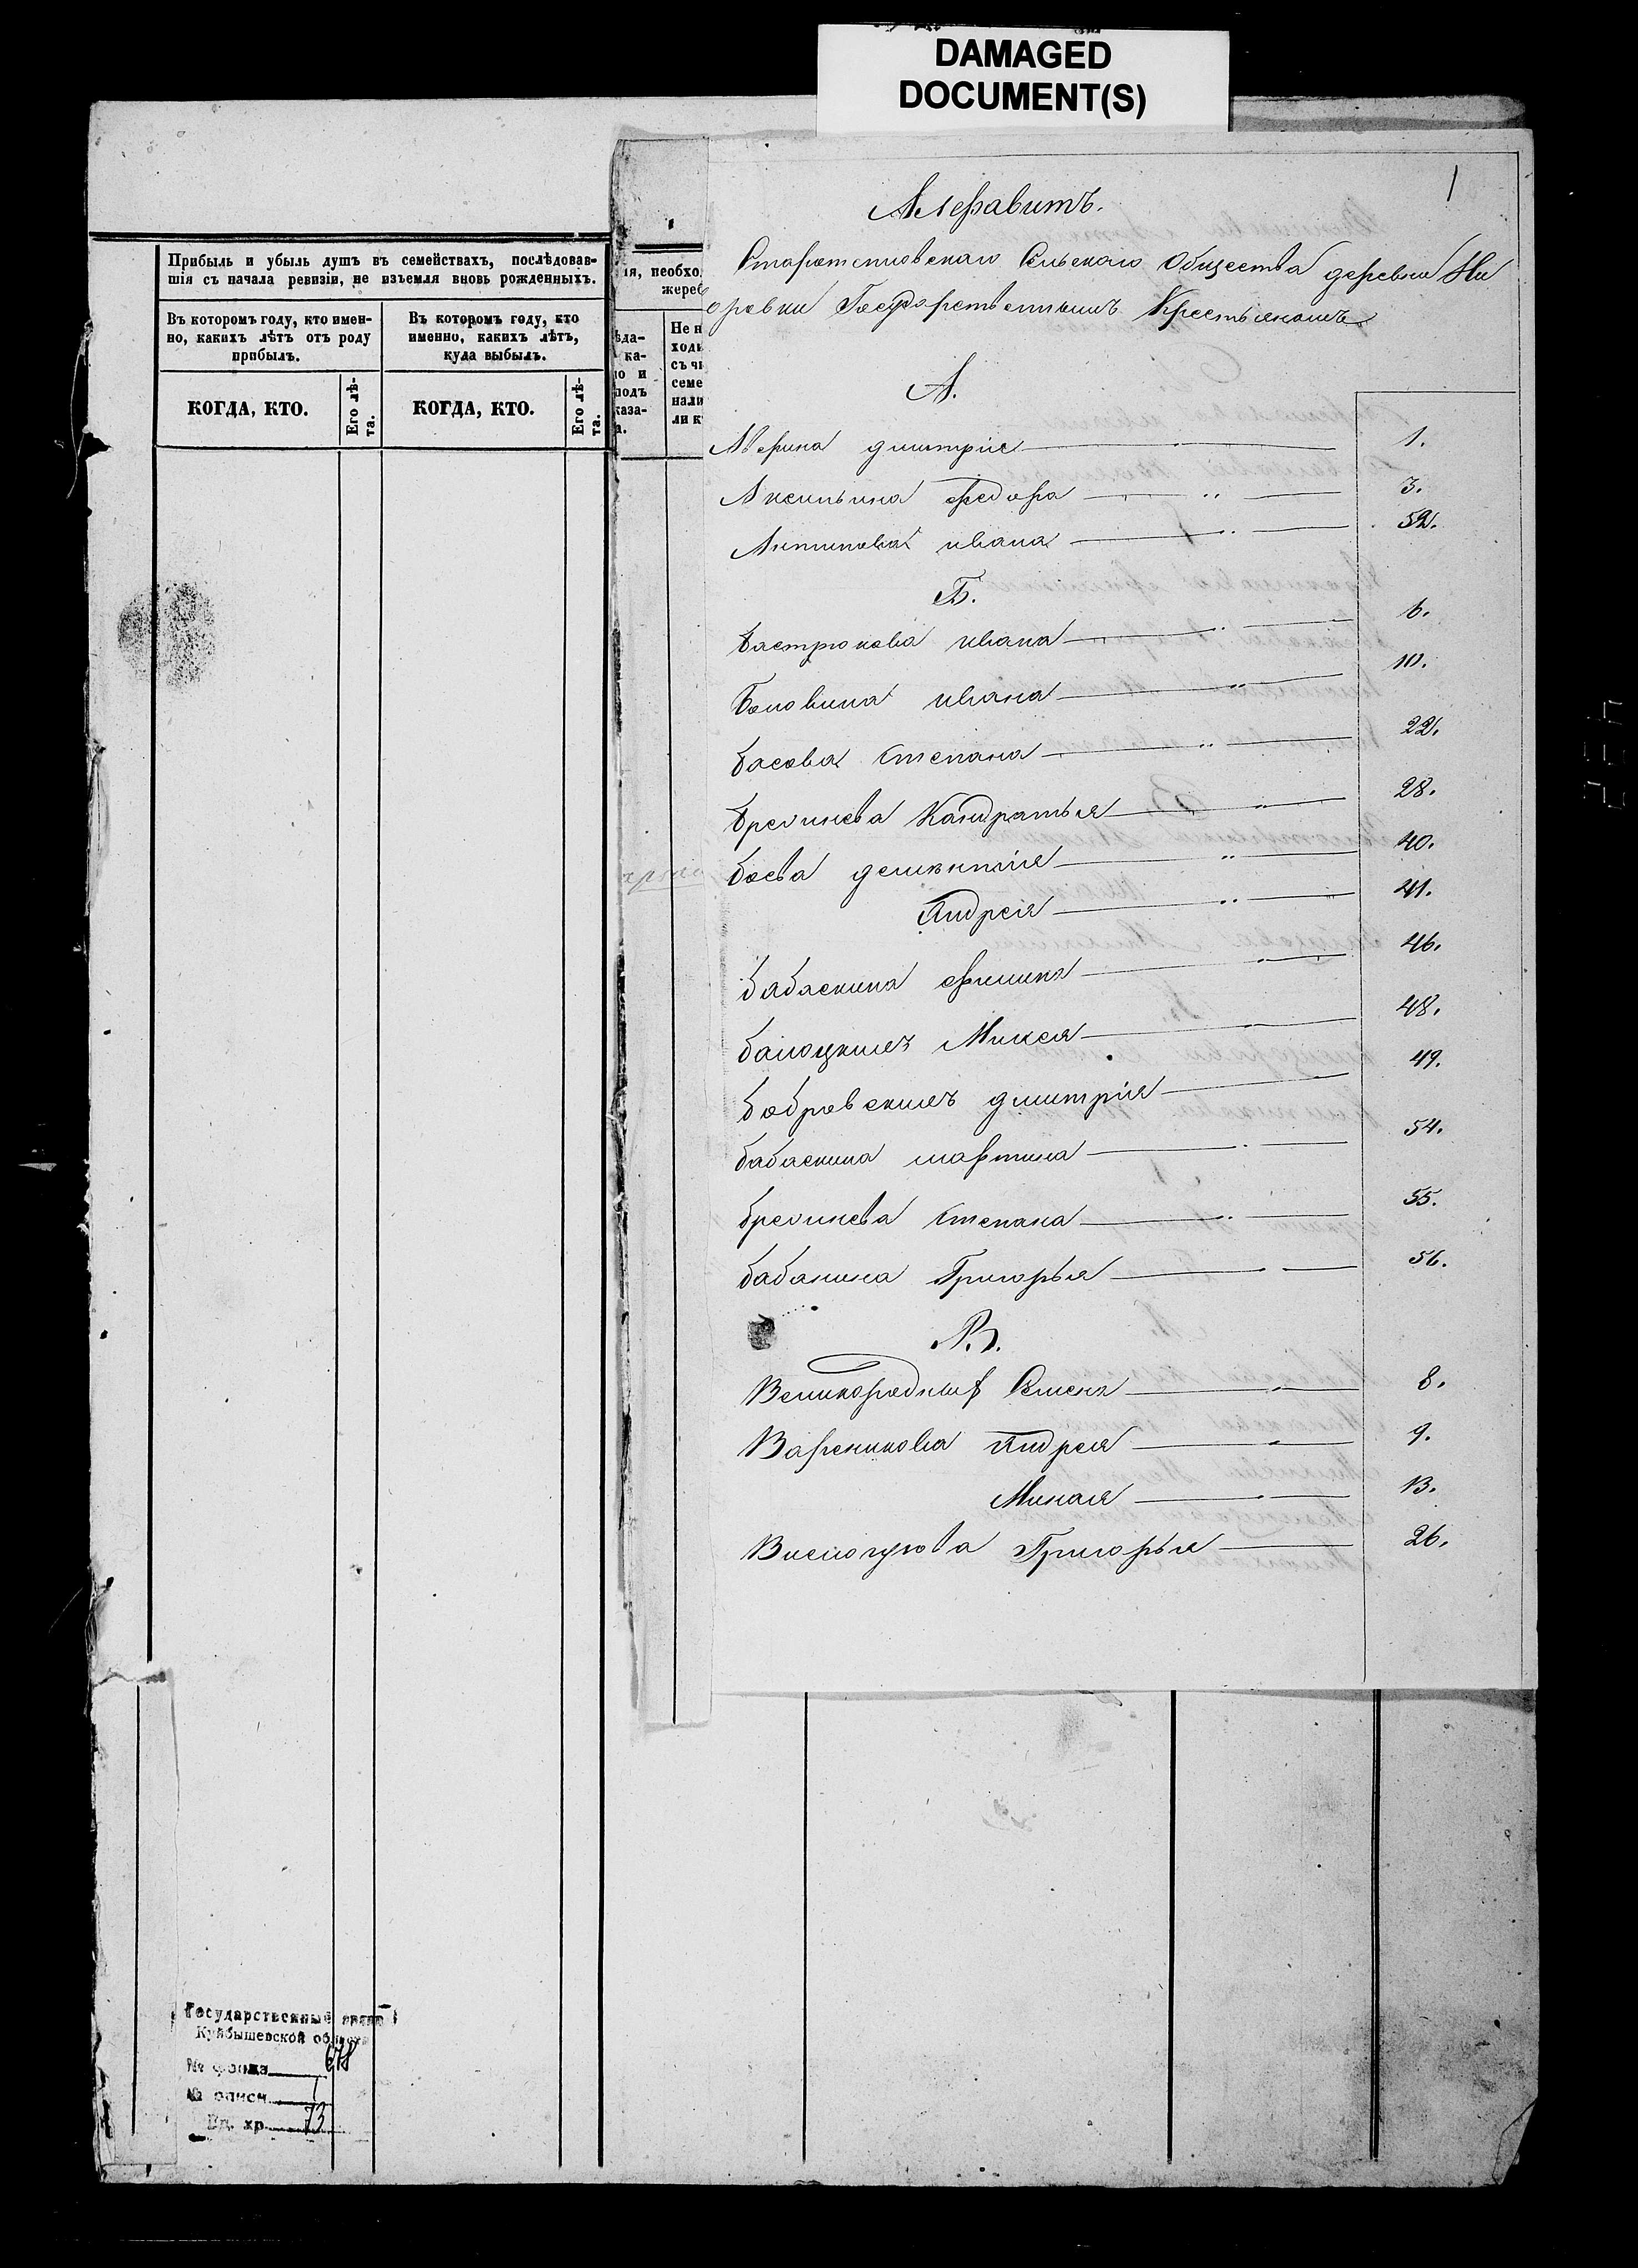 DAMAGED
DOCUMENT(S)
Прибыль и убыль душъ въ семействахъ, послѣдовав-
шія съ начала ревизіи, не изъемля вновь рожденныхъ.
Въ которомъ году, кто имен-
но, какихъ лѣтъ отъ роду
прибылъ.
Въ которомъ году, кто
именно, какихъ лѣтъ,
куда выбылъ.
КОГДА, КТО.
Его лѣ-
та.
КОГДА, КТО.
Его лѣ-
та.
ія, необхо
жереб
ѣда-
ка-
о и
подъ
каза-
а.
Не н
ходи
съ чи
семе
нали
ли к
1
Алфавитъ.
Сельскаго Общества деревни Ни
оровки Государственнымъ Крестьянамъ
А.
Аверина дмитрія 1.
Аксиньина федора 3.
Антипова ивана 52.
Б.
Бастрюкова ивана 6.
ивана 10.
басова степана 22.
Брехинева Кандратья 28.
боева дементія 40.
Андрея 41.
бабаскина филипа 46.
балоцкихъ Микея 48.
бобровскихъ дмитрія 49.
бабаскина мартина 54.
брехинева степана 55.
бабанина Григорья 56.
В.
Великородныхъ Семена 8.
Вареникова Андрея 9.
Миная 13.
Вислогузова Григорья 26.
Государственный архив
Куйбышевской области
№ фонда 678
№ описи 1
Ед. хр. 73